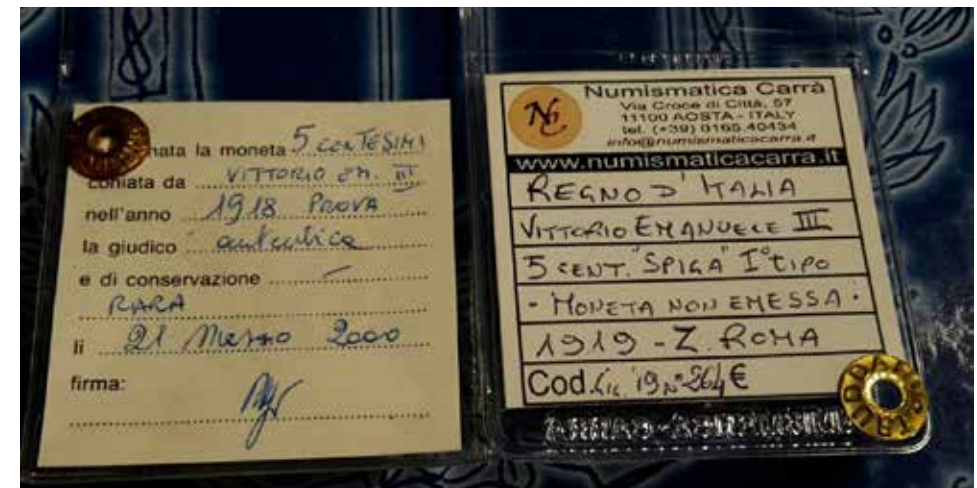 nata la moneta 5 CENTESIMI
coniata da VITTORIO EM. III
nell'anno 1918 PROVA
la giudico autentica
e di conservazione
RARA
li 21 Marzo 2000
firma:
NC
Numismatica Carrà
Via Croce di Città, 57
11100 AOSTA - ITALY
tel. (+39) 0165.40434
info@numismaticacarra.it
www.numismaticacarra.it
REGNO D'ITALIA
VITTORIO EMANUELE III
5 CENT. "SPIGA" I° TIPO
- MONETA NON EMESSA -
1919 - Z. ROMA
Cod. '19 N° 264 €